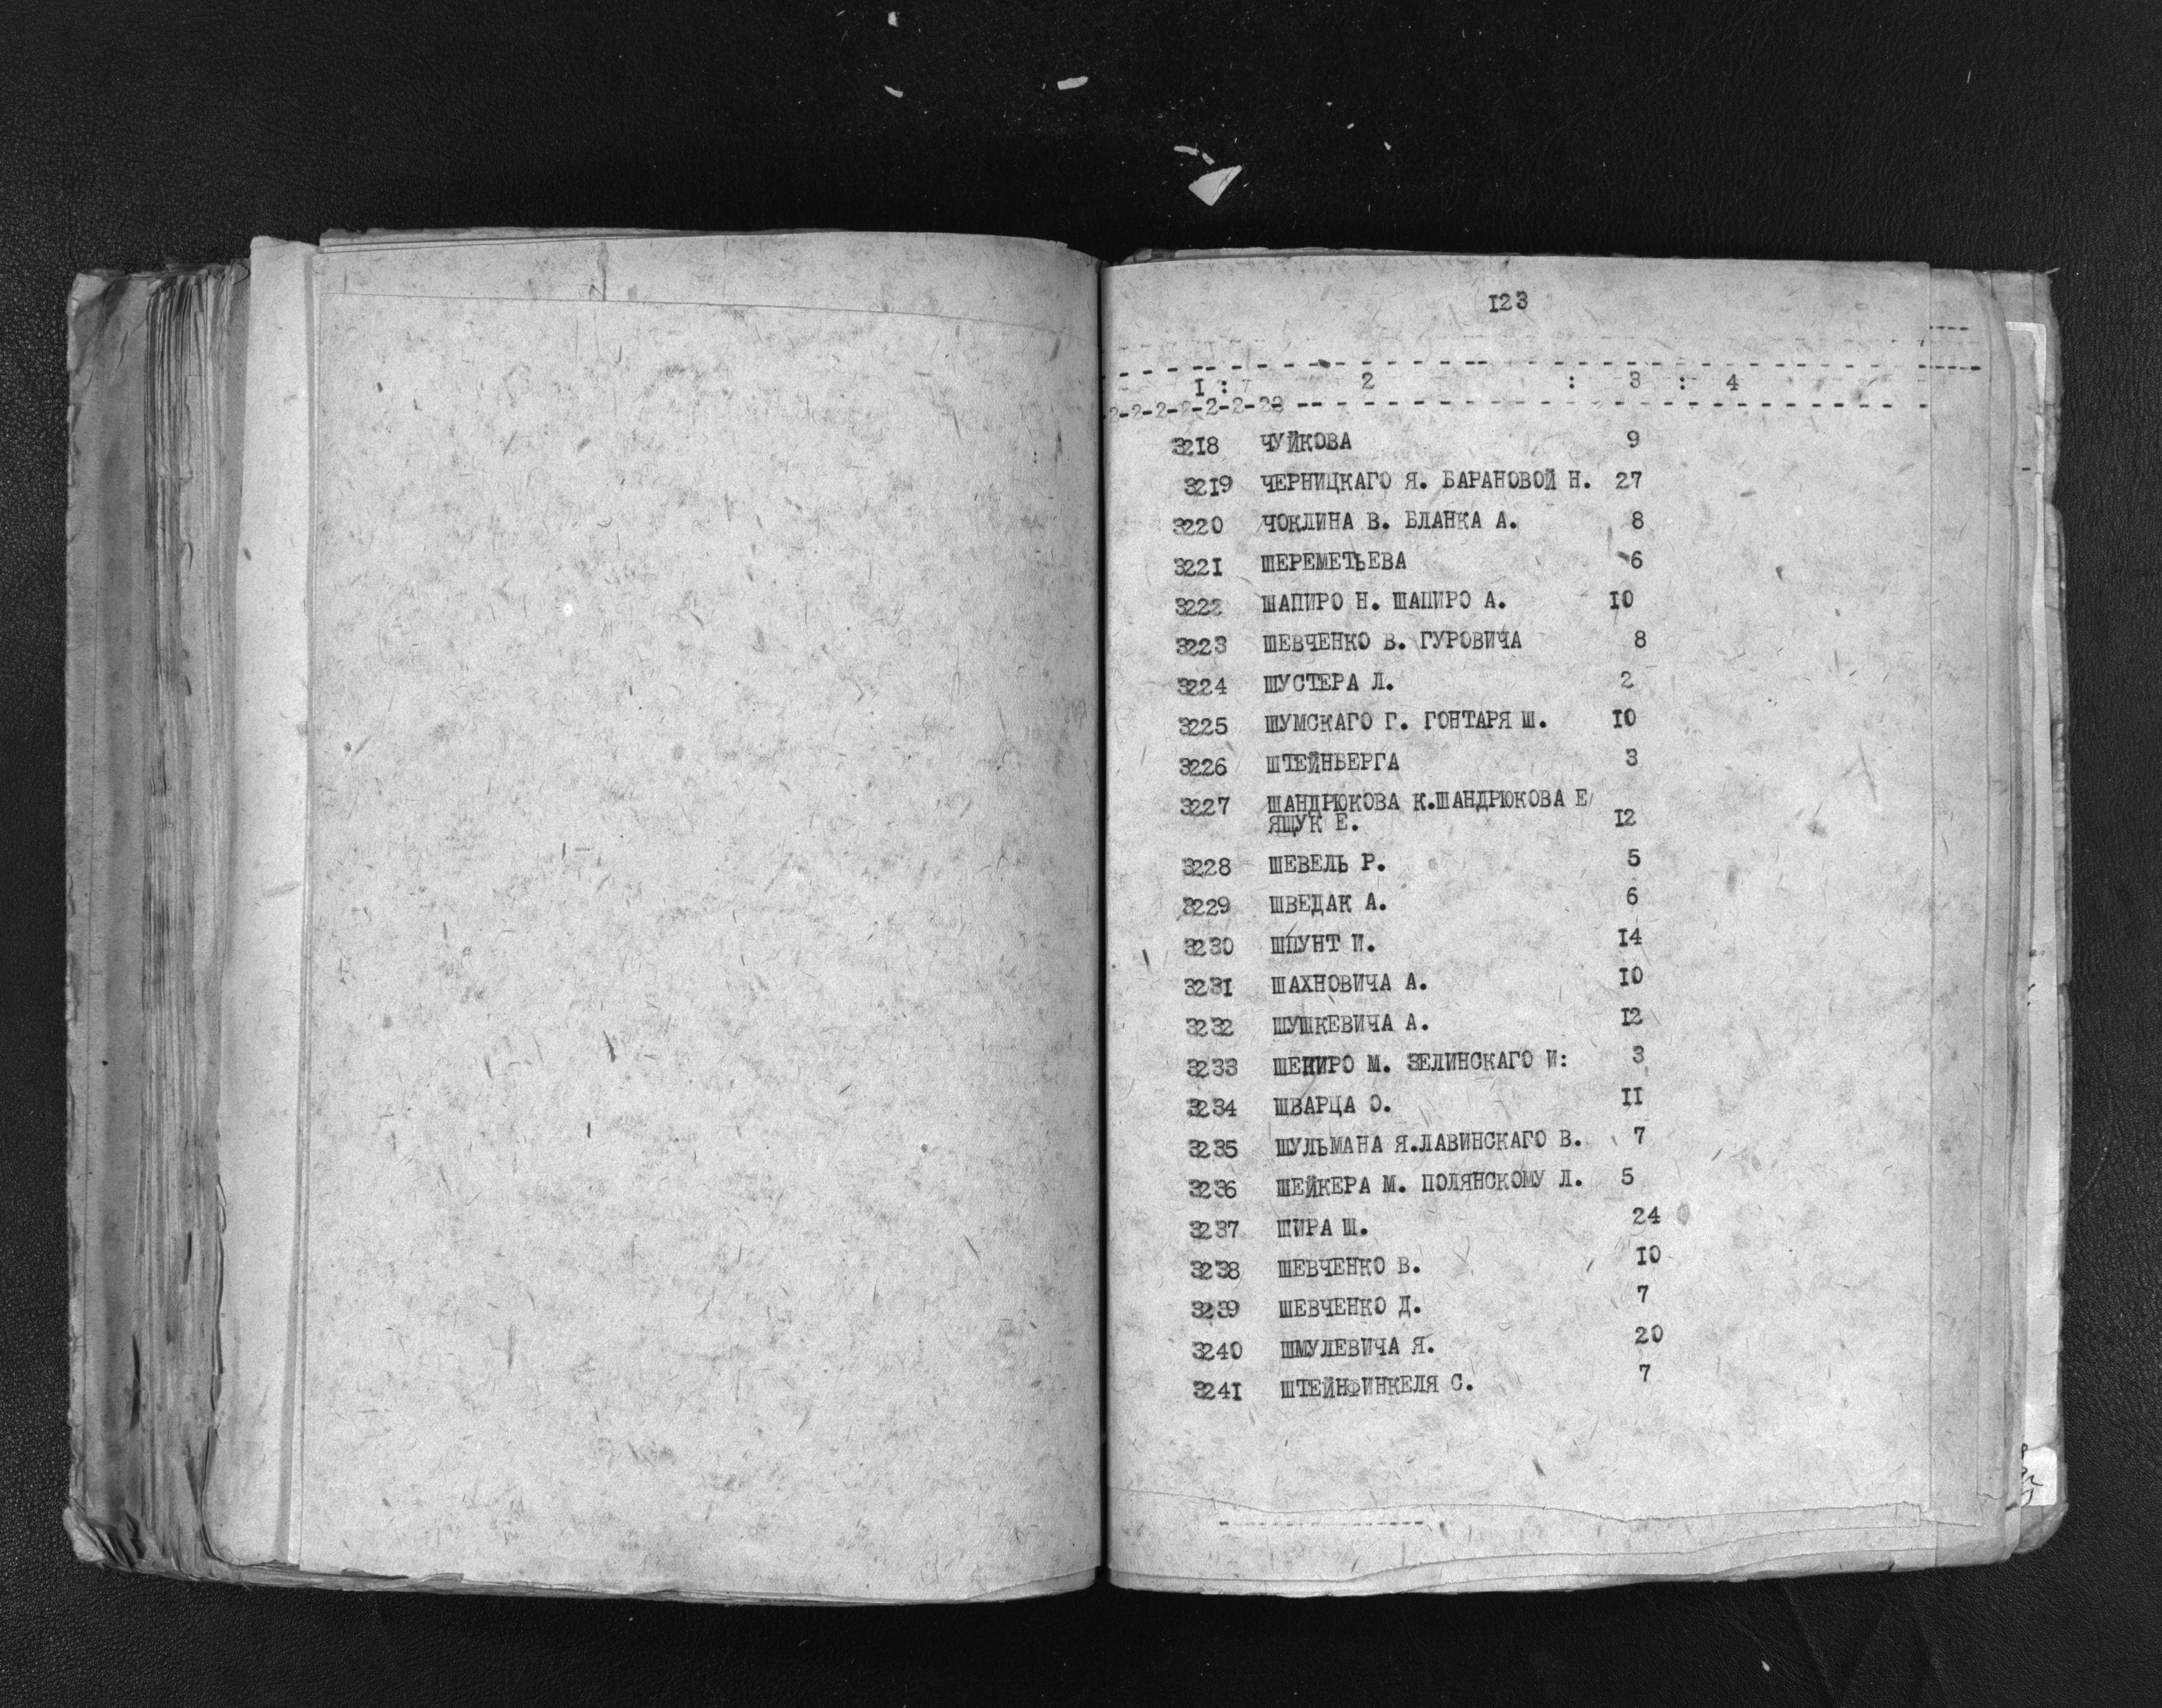 123
1 : 2 : 3 : 4
3218 ЧУЙКОВА 9
3219 ЧЕРНИЦКАГО Я. БАРАНОВОЙ Н. 27
3220 ЧОКЛИНА В. БЛАНКА А. 8
3221 ШЕРЕМЕТЬЕВА 6
3222 ШАПИРО Н. ШАПИРО А. 10
3223 ШЕВЧЕНКО В. ГУРОВИЧА 8
3224 ШУСТЕРА Л. 2
3225 ШУМСКАГО Г. ГОНТАРЯ Ш. 10
3226 ШТЕЙНБЕРГА 3
3227 ШАНДРЮКОВА К.ШАНДРЮКОВА Е/
ЯЩУК Е. 12
3228 ШЕВЕЛЬ Р. 5
3229 ШВЕДАК А. 6
3230 ШПУНТ И. 14
3231 ШАХНОВИЧА А. 10
3232 ШУШКЕВИЧА А. 12
3233 ШЕПИРО М. ЗЕЛИНСКАГО И: 3
3234 ШВАРЦА О. 11
3235 ШУЛЬМАНА Я.ЛАВИНСКАГО В. 7
3236 ШЕЙКЕРА М. ПОЛЯНСКОМУ Л. 5
3237 ШИРА Ш. 24
3238 ШЕВЧЕНКО В. 10
3239 ШЕВЧЕНКО Д. 7
3240 ШМУЛЕВИЧА Я. 20
3241 ШТЕЙНФИНКЕЛЯ С. 7